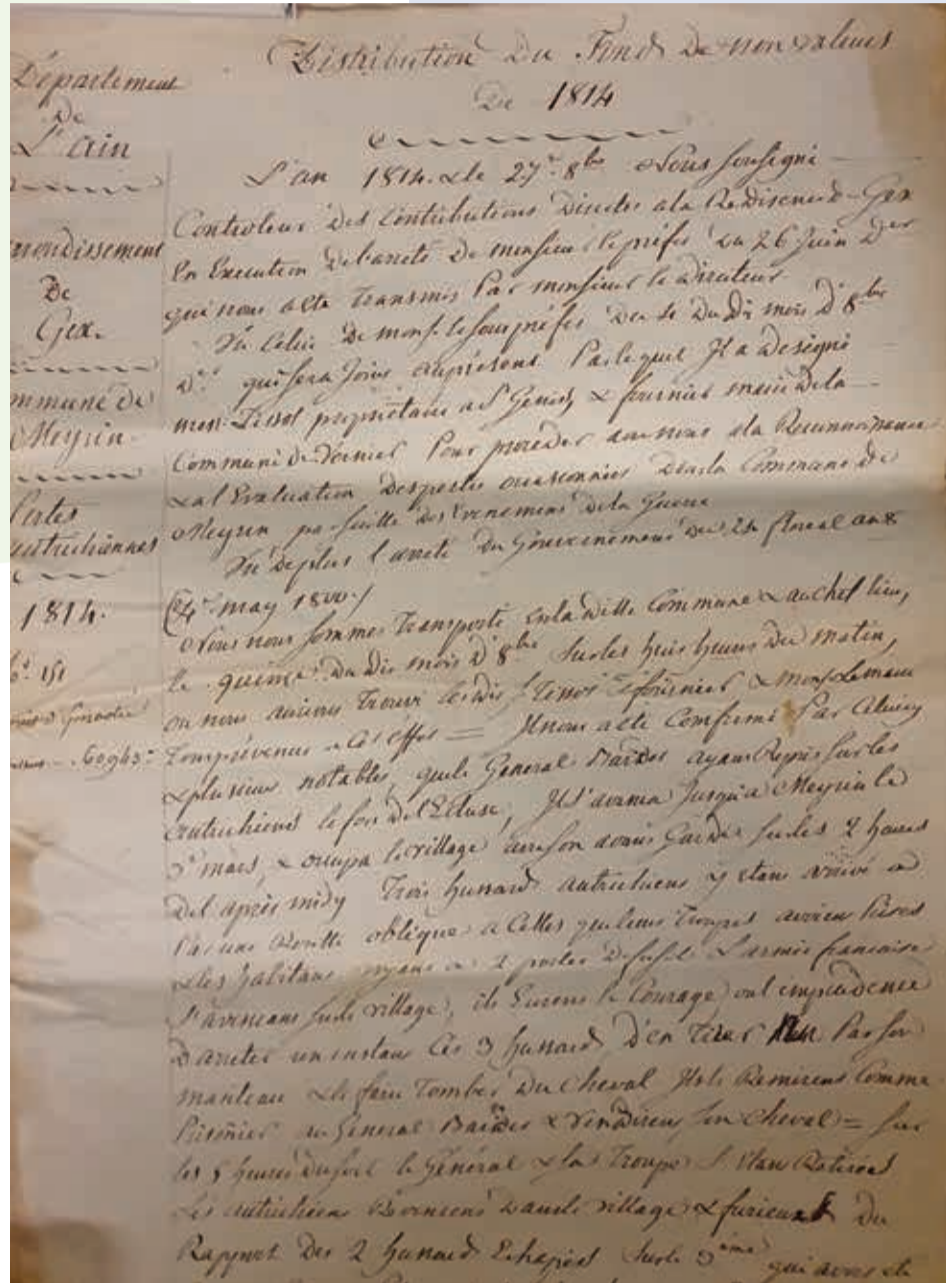 Distribution Du Fond De non valeurs
De 1814
Département
De
L'ain
arrondissement
De
Gex.
mmune De
Meyrin
Pertes
autrichiennes
1814.
60963
L'an 1814. & le 27e 8bre Nous soussigné
Controleur Des Contributions Directes a la Residence de Gex
En Execution de l'arreté De monsieur le préfet du 26 Juin Der
qui nous a été transmis Par monsieur le Directeur
Vu Celui De monsr. le sous préfet du Dudit mois D'8bre
qui sera Joint au présent Par lequel Il a designé
Tissot propriétaire a St Genis, & fournier maire de la
Commune de Vernier Pour proceder avec nous a la Reconnoissance
& a l'Evaluation des pertes occasionnées Dans la Commune de
Meyrin par suitte des Evenemens de la Guerre
Vu De plus l'arreté du Gouvernement du 24 floreal an 8
(4e may 1800)
Nous nous sommes Transporté en la ditte Commune & au chef lieu,
le quinze du dit mois D'8bre sur les huit heures Du matin,
ou nous avions Trouvé les dits Srs Tissot & fournier & monsr Le maire
prévenus a Cet effet = Il nous a été Confirmé Par
& plusieurs notables, que le General Bardet ayant Repris sur les
autrichiens le fort de l'Ecluse, Il s'avança Jusqu'a Meyrin le
mars, & occupa le village avec son avant Garde sur les 2 heures
De l'après midy Trois hussards autrichiens y etant arrivé
Par une Routte oblique a Celles que leurs Troupes avoient
& les habitans voyant a 2 portés De fusil L'armée francaise
s'avancant sur le village, ils Eurent le Courage ou l'impudence
D'arreter un instant Ces 3 hussards D'en Tirer un Par son
manteau & le faire Tomber Du Cheval Ils le Remirent Comme
Prisonnier au General Bardet & Vendirent son Cheval = sur
les 5 heures Du soir le Général & la Troupe s'étant Retirés
Les autrichiens Revinrent Dans le village & furieux Du
Rapport Des 2 hussards Echapés sur le 3ème qui avoit été